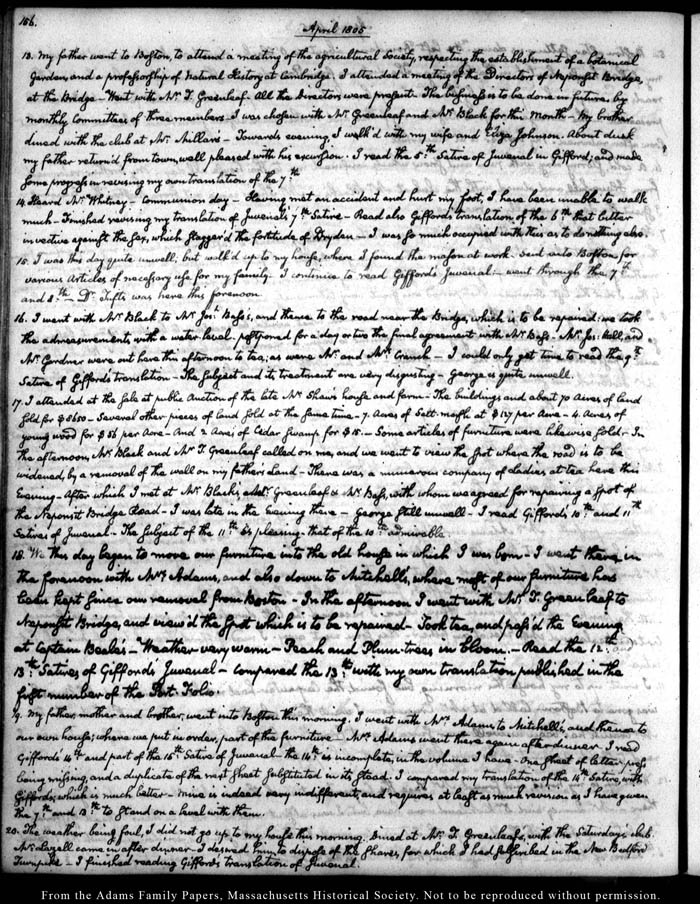 156.
April 1805
13. My father went to Boston, to attend a meeting of the agricultural Society, respecting the establishment of a botanical
Garden, and a professorship of Natural History at Cambridge. I attended a meeting of the Directors of Neponset Bridge,
at the Bridge — Went with Mr. T. Greenleaf. All the Directors were present. The business is to be done in future by
monthly Committees of three members. I was chosen with Mr. Greenleaf and Mr. Black for this Month — My brother
dined with the club at Mr. Millar's — Towards evening I walk'd with my wife and Eliza Johnson. About dusk
my father return'd from town, well pleased with his excursion. I read the 5th. Satire of Juvenal in Gifford; and made
some progress in revising my own translation of the 7th
14. Heard Mr. Whitney — Communion day — Having met an accident and hurt my foot, I have been unable to walk
much — Finished revising my translation of Juvenal's 7th. Satire — Read also Gifford's translation of the 6th that bitter
invective against the sex, which stagger'd the fortitude of Dryden — I was so much occupied with this as to do nothing else.
15. I was this day quite unwell; but walk'd up to my house, where I found the mason at work. Sent into Boston for
various Articles of necessary use for my family. I continue to read Gifford's Juvenal — went through the 7th
and 8th — Dr. Tufts was here this forenoon.
16. I went with Mr. Black to Mr. Josh. Bass's, and thence to the road near the Bridge, which is to be repaired: we took
the admeasurements, with a water level. postponed for a day or two the final agreement with Mr. Bass — Mr. Jos: Hall, and
Mr. Gardner were out here this afternoon to tea; as were Mr. and Mrs. Cranch — I could only get time to read the 9th
Satire of Gifford's translation — The subject and its treatment are very disgusting — George is quite unwell.
17. I attended at the sale at public Auction of the late Mr. Shaw's house and farm — The buildings and about 70 Acres of land
sold for $6650 — Several other pieces of land sold at the same time — 7. Acres of Salt marsh at $127 per Acre — 4. Acres of
young wood for $56 per Acre — And 2 Acres of Cedar Swamp for $15. — Some articles of furniture were likewise sold — In
the afternoon, Mr. Black and Mr. T. Greenleaf called on me, and we went to view the spot where the road is to be
widened, by a removal of the wall on my father's Land — There was a numerous company of Ladies at tea here this
Evening — After which I met at Mr. Black's, Mr. Greenleaf & Mr. Bass, with whom we agreed for repairing a spot of
the Neponset Bridge Road — I was late in the Evening there — George still unwell — I read Gifford's 10th and 11th
Satires of Juvenal — The subject of the 11th. is pleasing — that of the 10th. admirable.
18. We this day began to move our furniture into the old house in which I was born — I went there, in
the forenoon with Mrs. Adams, and also down to Mitchell's, where most of our furniture has
been kept since our removal from Boston — In the afternoon I went with Mr. T. Greenleaf to
Neponset Bridge, and view'd the spot which is to be repaired — Took tea, and pass'd the Evening
at Captain Beale's — Weather very warm — Peach and Plum-trees in bloom. — Read the 12th. &
13th. Satires of Gifford's Juvenal — Compared the 13th. with my own translation published in the
first number of the Port-Folio.
19. My father, mother and brother, went into Boston this morning. I went with Mrs. Adams to Mitchell's, and thence to
our own house; where we put in order, part of the furniture — Mrs. Adams went there again after dinner. I read
Gifford's 14th and part of the 15th. Satire of Juvenal — the 14th. is incomplete, in the volume I have — One sheet of letter-press
being missing, and a duplicate of the next sheet substituted in its stead. I compared my translation of the 14th Satire, with
Gifford's; which is much better — mine is indeed very indifferent, and requires at least as much revision as I have given
the 7th. and 13th. to stand on a level with them.
20. The weather being foul, I did not go up to my house this morning. Dined at Mr. T. Greenleaf's, with the Saturday club.
Mr. Lovell came in after dinner — I desired him to dispose of the shares, for which I had subscribed in the New Bedford
Turnpike — I finished reading Gifford's translation of Juvenal.
From the Adams Family Papers, Massachusetts Historical Society. Not to be reproduced without permission.